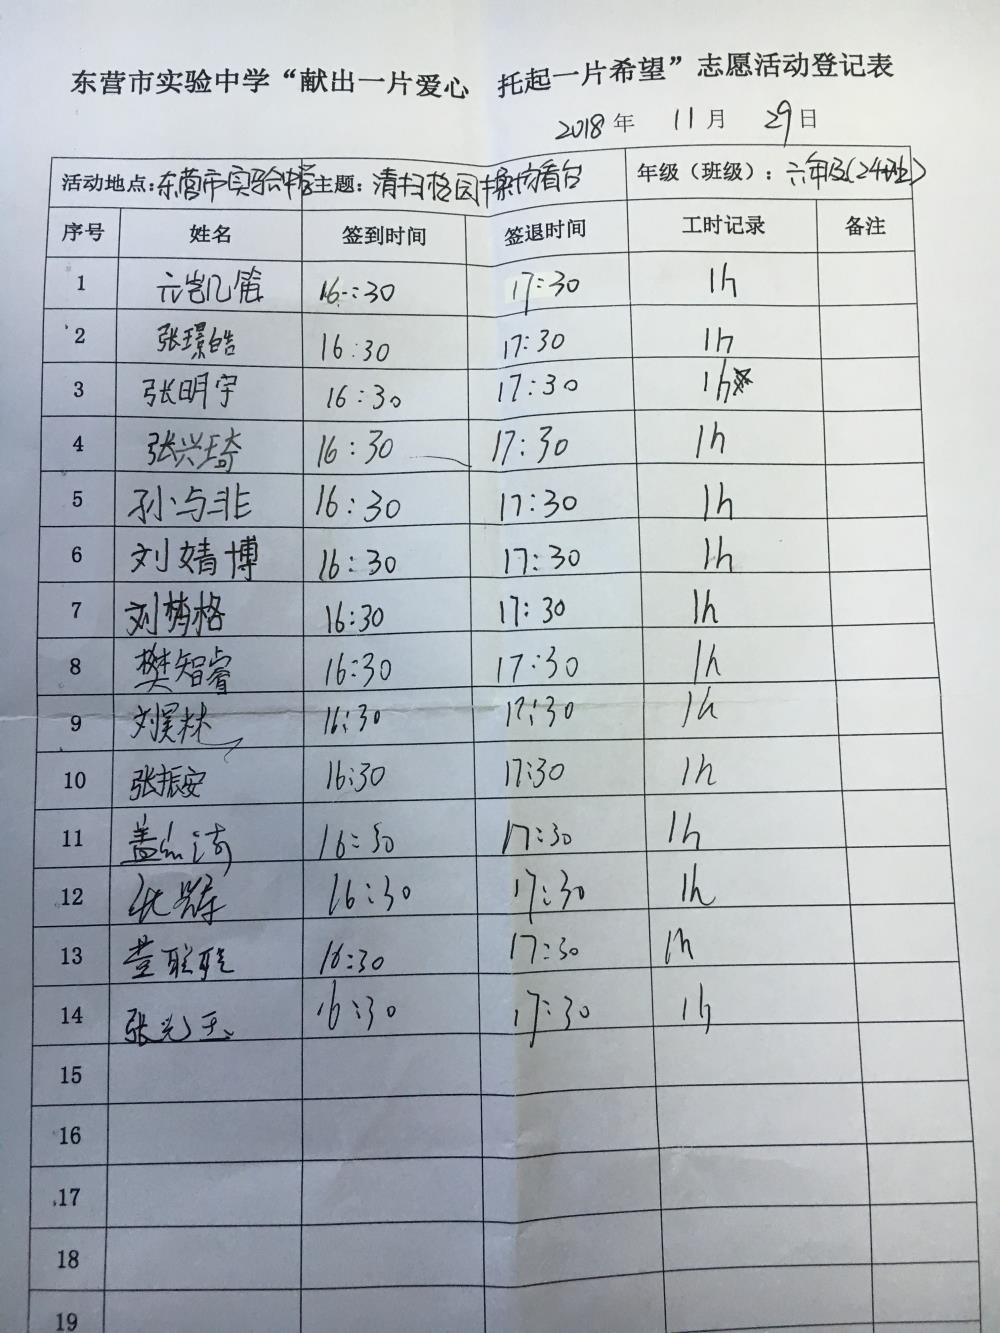 东营市实验中学“献出一片爱心 托起一片希望”志愿活动登记表
2018年 11月 29日
活动地点:东营市实验中学 主题:清扫校园操场看台 年级（班级）:六年级(24班)
序号 姓名 签到时间 签退时间 工时记录 备注
1 16:30 17:30 1h
2 张璟皓 16:30 17:30 1h
3 张明宇 16:30 17:30 1h
4 张兴琦 16:30 17:30 1h
5 孙与非 16:30 17:30 1h
6 刘婧博 16:30 17:30 1h
7 刘梦格 16:30 17:30 1h
8 樊智睿 16:30 17:30 1h
9 刘昊林 16:30 17:30 1h
10 张振安 16:30 17:30 1h
11 16:30 17:30 1h
12 16:30 17:30 1h
13 16:30 17:30 1h
14 16:30 17:30 1h
15
16
17
18
19